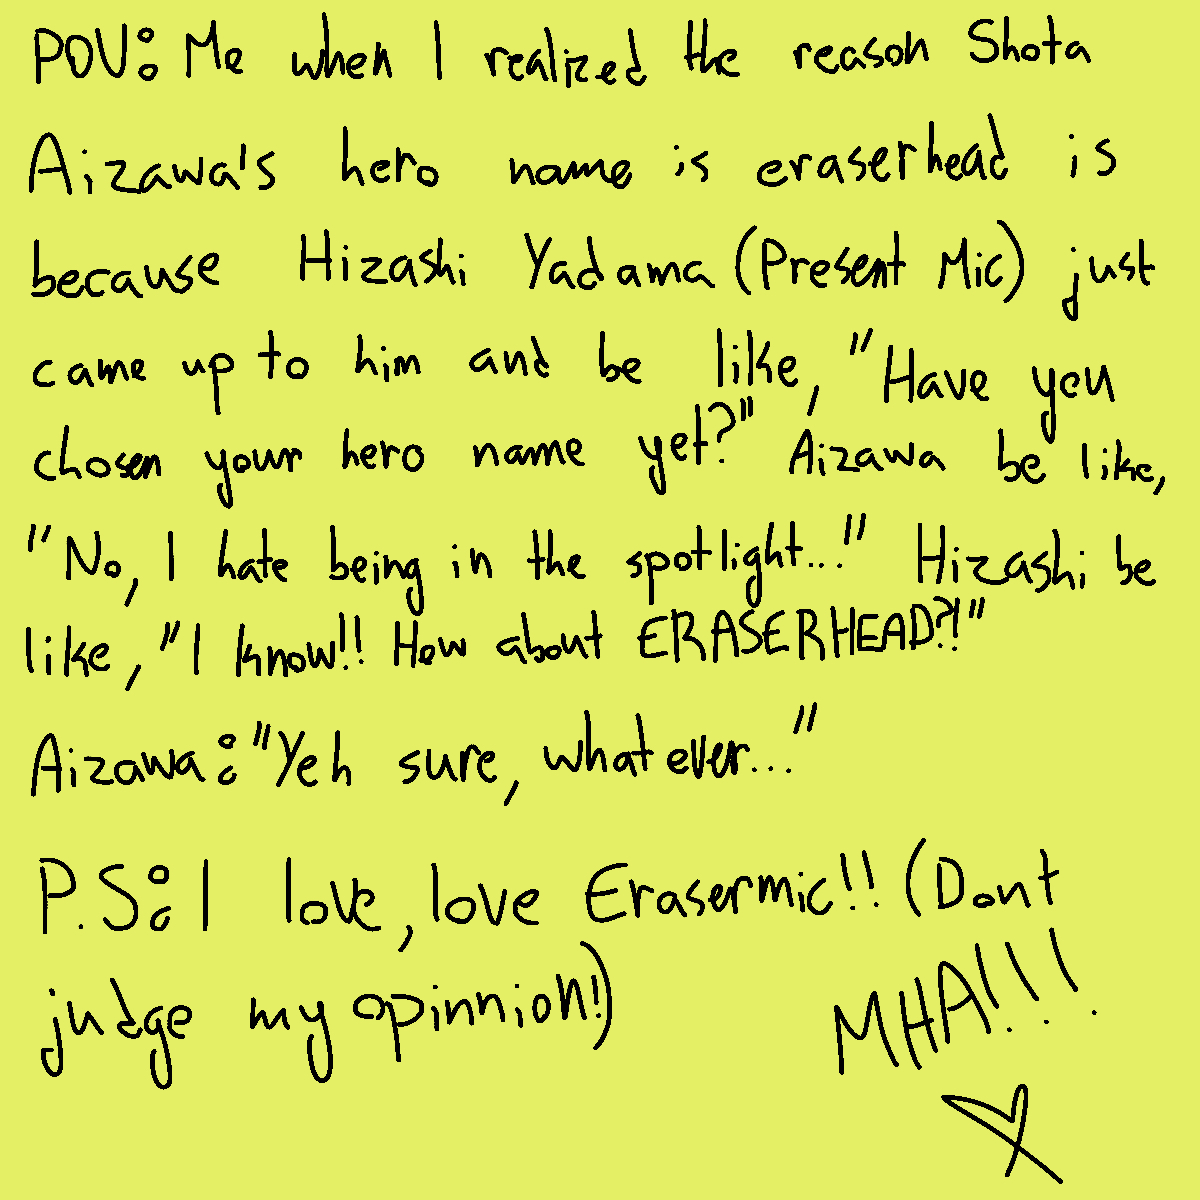 POV: Me when I realized the reason Shota
Aizawa's hero name is eraserhead is
because Hizashi Yadama (Present Mic) just
came up to him and be like, "Have you
chosen your hero name yet?" Aizawa be like,
"No, I hate being in the spotlight..." Hizashi be
like, "I know!! How about ERASERHEAD?!"
Aizawa: "Yeh sure, whatever..."
P.S: I love, love Erasermic!! (Dont
judge my opinnion!)
MHA!!!